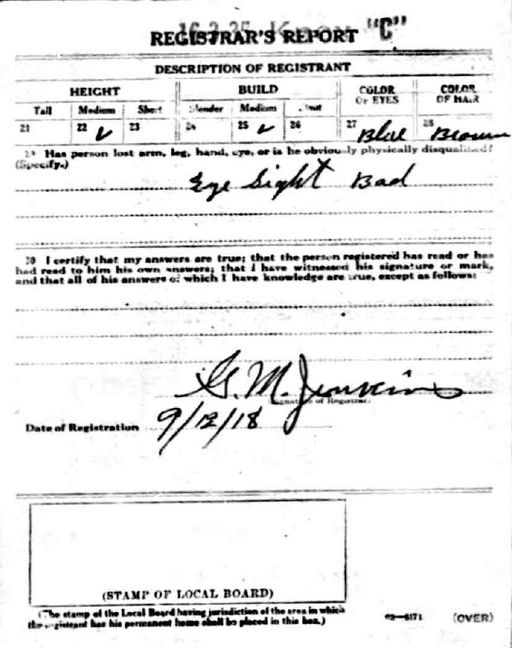 16-3-25 "C"
REGISTRAR'S REPORT
DESCRIPTION OF REGISTRANT
HEIGHT BUILD COLOR OF EYES COLOR OF HAIR
Tall Medium Short Slender Medium Stout
21 22 ✓ 23 24 25 ✓ 26 27 Blue 28 Brown
29 Has person lost arm, leg, hand, eye, or is he obviously physically disqualified?
(Specify.)
Eye Sight Bad
30 I certify that my answers are true; that the person registered has read or has
had read to him his own answers; that I have witnessed his signature or mark,
and that all of his answers of which I have knowledge are true, except as follows:
G. M. Jenkins
Signature of Registrar
Date of Registration 9/12/18
(STAMP OF LOCAL BOARD)
(The stamp of the Local Board having jurisdiction of the area in which
the registrant has his permanent home shall be placed in this box.)
03—6171 (OVER)